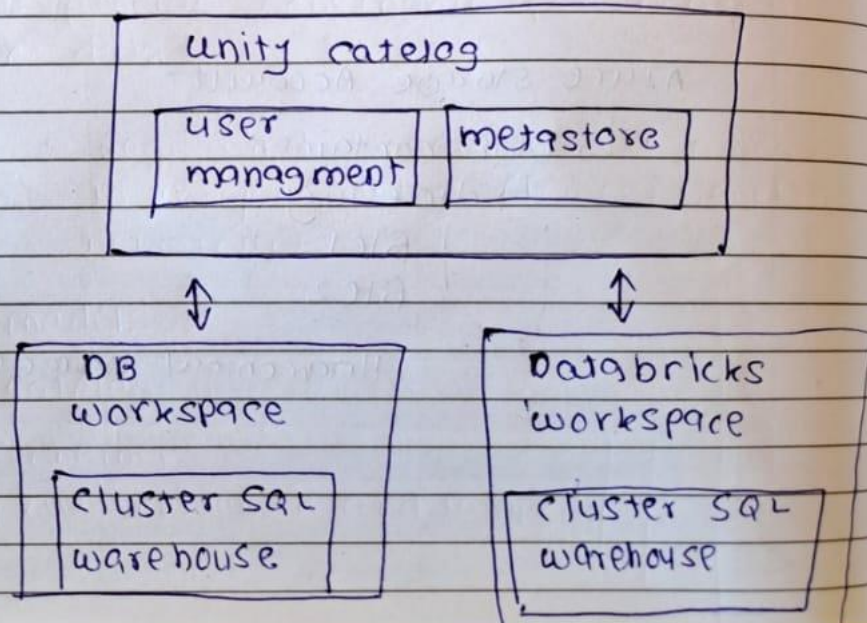 unity catelog
user
managment
metastore
DB
workspace
cluster SQL
warehouse
Databricks
workspace
cluster SQL
warehouse